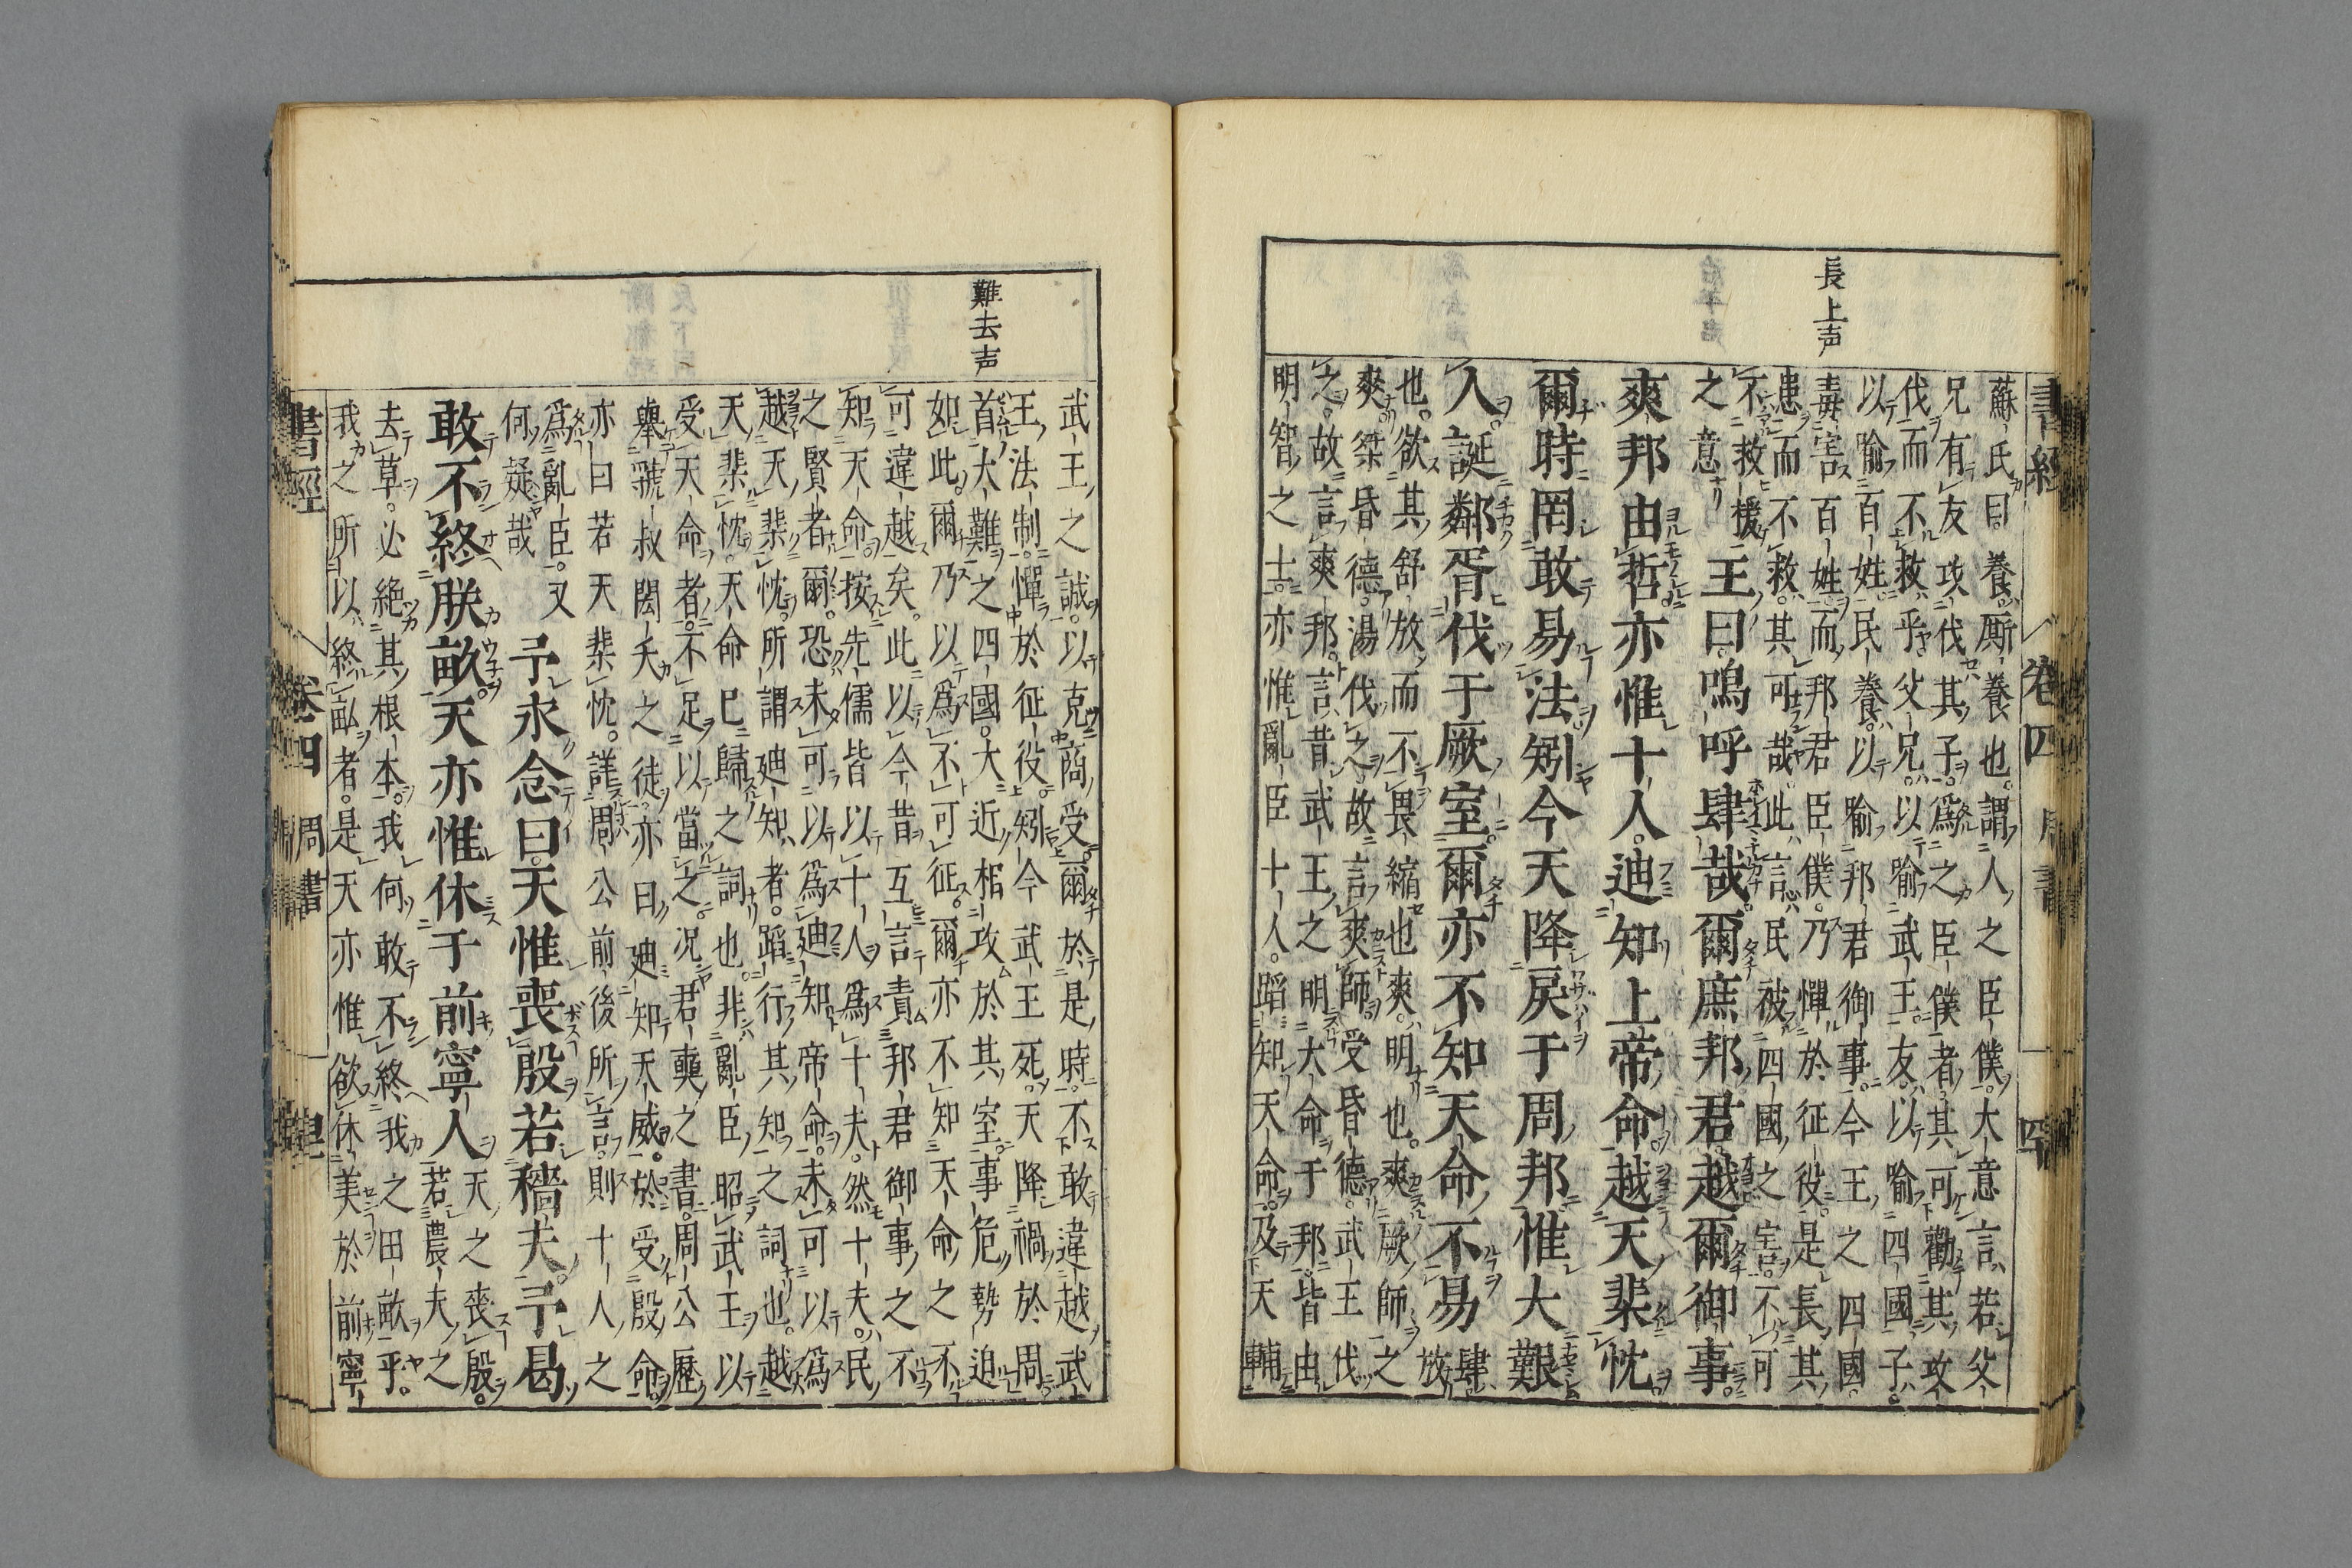 書經 卷四 周書
長上声
蘇氏曰養廝養也謂人之臣僕大意言若父
兄有友攻伐其子爲之臣僕者其可勸其攻
伐而不救乎父兄以喩武王友以喩四國子
以喩百姓民養以喩邦君御事今王之四國
毒害百姓而邦君臣僕乃憚於征役是長其
患而不救其可哉此言民被四國之害不可
不救援
之意
王曰嗚呼肆哉爾庶邦君越爾御事
爽邦由哲亦惟十人迪知上帝命越天棐忱
爾時罔敢易法矧今天降戾于周邦惟大艱
人誕鄰胥伐于厥室爾亦不知天命不易
肆放
也欲其舒放而不畏縮也爽明也爽厥師之
爽桀昏德湯伐之故言爽師受昏德武王伐
之故言爽邦言昔武王之明大命于邦皆由
明智之士亦惟亂臣十人蹈知天命及天輔
難去声
武王之誠以克商受爾於是時不敢違越武
王法制憚於征役矧今武王死天降禍於周
首大難之四國大近相攻於其室事危勢迫
如此爾乃以爲不可征爾亦不知天命之不
可違越矣此以今昔互言責邦君御事之不
知天命按先儒皆以十人爲十夫然十夫民
之賢者爾恐未可以爲迪知帝命未可以爲
越天棐忱所謂迪知者蹈行其知之詞也越
天棐忱天命已歸之詞也非亂臣昭武王以
受天命者不足以當之况君奭之書周公歷
舉虢叔閎夭之徒亦曰迪知天威於受殷命
亦曰若天棐忱詳周公前後所言則十人之
爲亂臣又
何疑哉
予永念曰天惟喪殷若穡夫予曷
敢不終朕畝天亦惟休于前寧人
天之喪殷
若農夫之
去草必絶其根本我何敢不終我之田畝乎
我之所以終畝者是天亦惟欲休美於前寧
書經 卷四 周書